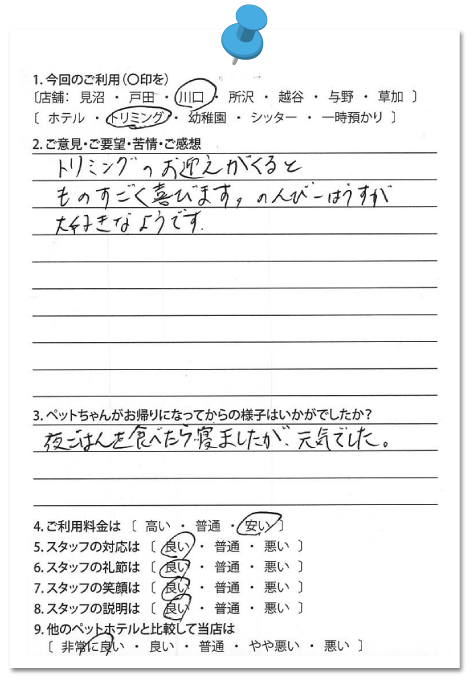 1. 今回のご利用(〇印を)
〔店舗: 見沼 ・ 戸田 ・ 川口 ・ 所沢 ・ 越谷 ・ 与野 ・ 草加 〕
〔 ホテル ・ トリミング ・ 幼稚園 ・ シッター ・ 一時預かり 〕
2. ご意見・ご要望・苦情・ご感想
トリミングのお迎えがくると
ものすごく喜びます。のんびーはうすが
大好きなようです.
3. ペットちゃんがお帰りになってからの様子はいかがでしたか?
夜ごはんを食べたら寝ましたが、元気でした。
4. ご利用料金は 〔 高い ・ 普通 ・ 安い 〕
5. スタッフの対応は 〔 良い ・ 普通 ・ 悪い 〕
6. スタッフの礼節は 〔 良い ・ 普通 ・ 悪い 〕
7. スタッフの笑顔は 〔 良い ・ 普通 ・ 悪い 〕
8. スタッフの説明は 〔 良い ・ 普通 ・ 悪い 〕
9. 他のペットホテルと比較して当店は
〔 非常に良い ・ 良い ・ 普通 ・ やや悪い ・ 悪い 〕